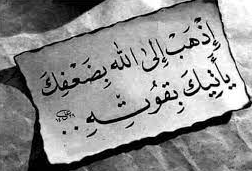 إِذْهَبْ إِلَى اللهِ بِضَعْفِكَ
يَأْتِيكَ بِقُوَّتِهِ ..